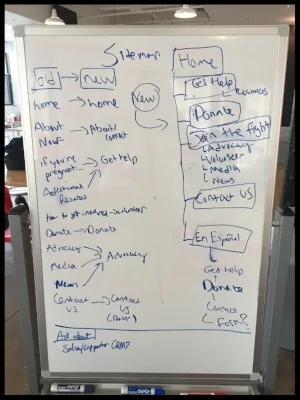 Sitemap
old → new
home → home
About Now → About/contact
if you're pregnant → Get help
Additional Resources
How to get involved → volunteer
Donate → Donate
Advocacy
Media → Advocacy
News
Contact US → Contact US (Footer)
Ask about
New
Home
Get Help
Resources
Donate
Join the fight
Advocacy
Volunteer
Media
News
Contact US
En Español
Get help
Donate
Contact
Form?